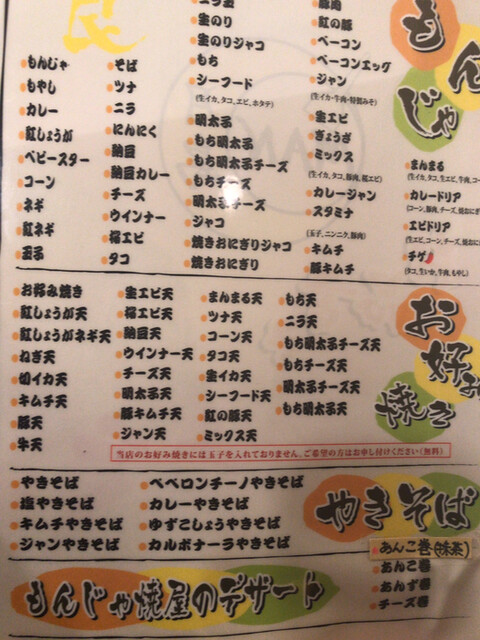 もんじゃ
もんじゃ
もやし
カレー
紅しょうが
ベビースター
コーン
ネギ
紅ネギ
玉子
そば
ツナ
ニラ
にんにく
納豆
納豆カレー
チーズ
ウインナー
桜エビ
タコ
生のり
生のりジャコ
もち
シーフード
(生イカ、タコ、エビ、ホタテ)
明太子
もち明太子
もち明太子チーズ
もちチーズ
明太子チーズ
ジャコ
焼きおにぎりジャコ
焼きおにぎり
豚肉
紅の豚
ベーコン
ベーコンエッグ
ジャン
(生イカ・牛肉・特製みそ)
生エビ
ぎょうざ
ミックス
(生イカ、タコ、豚肉、桜エビ)
カレージャン
スタミナ
(玉子、ニンニク、豚肉)
キムチ
豚キムチ
まんまる
カレードリア
エビドリア
チゲ
(タコ、生いか、牛肉、もやし)
お好み焼き
お好み焼き
紅しょうが天
紅しょうがネギ天
ねぎ天
切イカ天
キムチ天
豚天
牛天
生エビ天
桜エビ天
納豆天
ウインナー天
チーズ天
明太子天
豚キムチ天
ジャン天
まんまる天
ツナ天
コーン天
タコ天
生イカ天
シーフード天
紅の豚天
ミックス天
もち天
ニラ天
もち明太子チーズ天
もちチーズ天
明太子チーズ天
もち明太子天
当店のお好み焼きには玉子を入れておりません。ご希望の方はお申し付けください(無料)
やきそば
やきそば
塩やきそば
キムチやきそば
ジャンやきそば
ペペロンチーノやきそば
カレーやきそば
ゆずこしょうやきそば
カルボナーラやきそば
もんじゃ焼屋のデザート
あんこ巻(抹茶)
あんこ巻
あんず巻
チーズ巻